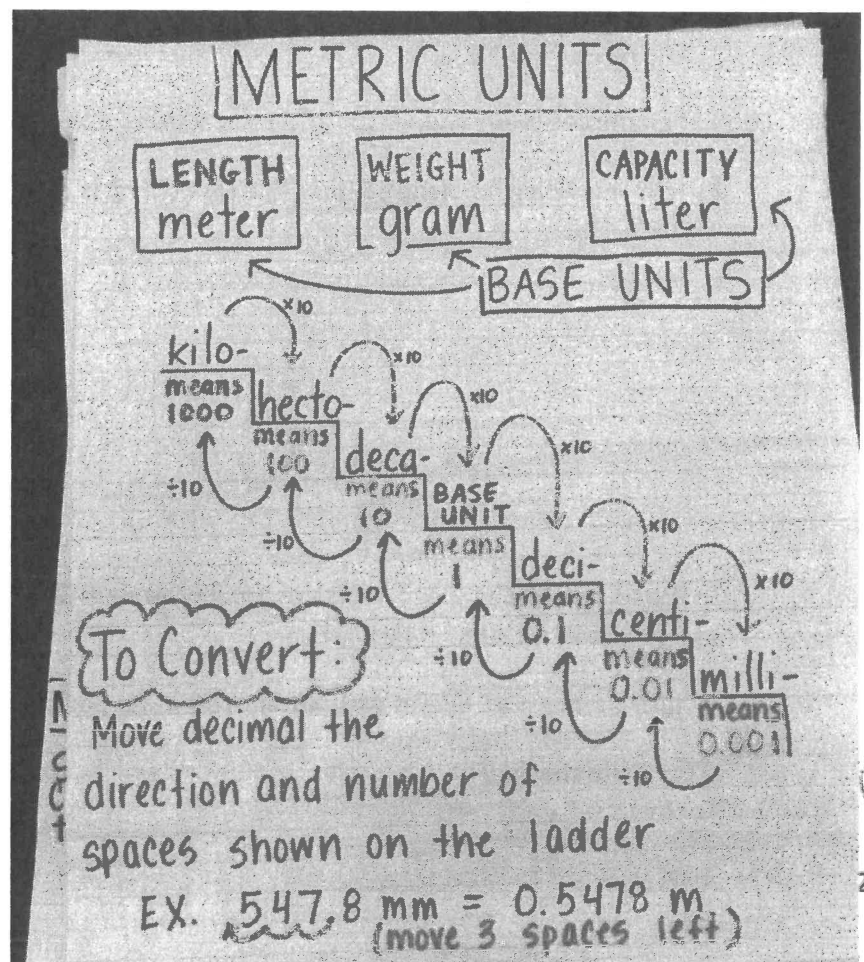 METRIC UNITS
LENGTH
meter
WEIGHT
gram
CAPACITY
liter
BASE UNITS
kilo-
means
1000
x10
÷10
hecto-
means
100
x10
÷10
deca-
means
10
x10
÷10
BASE
UNIT
means
1
x10
÷10
deci-
means
0.1
x10
÷10
centi-
means
0.01
x10
÷10
milli-
means
0.001
To Convert:
Move decimal the
direction and number of
spaces shown on the ladder
EX. .547.8 mm = 0.5478 m
(move 3 spaces left)